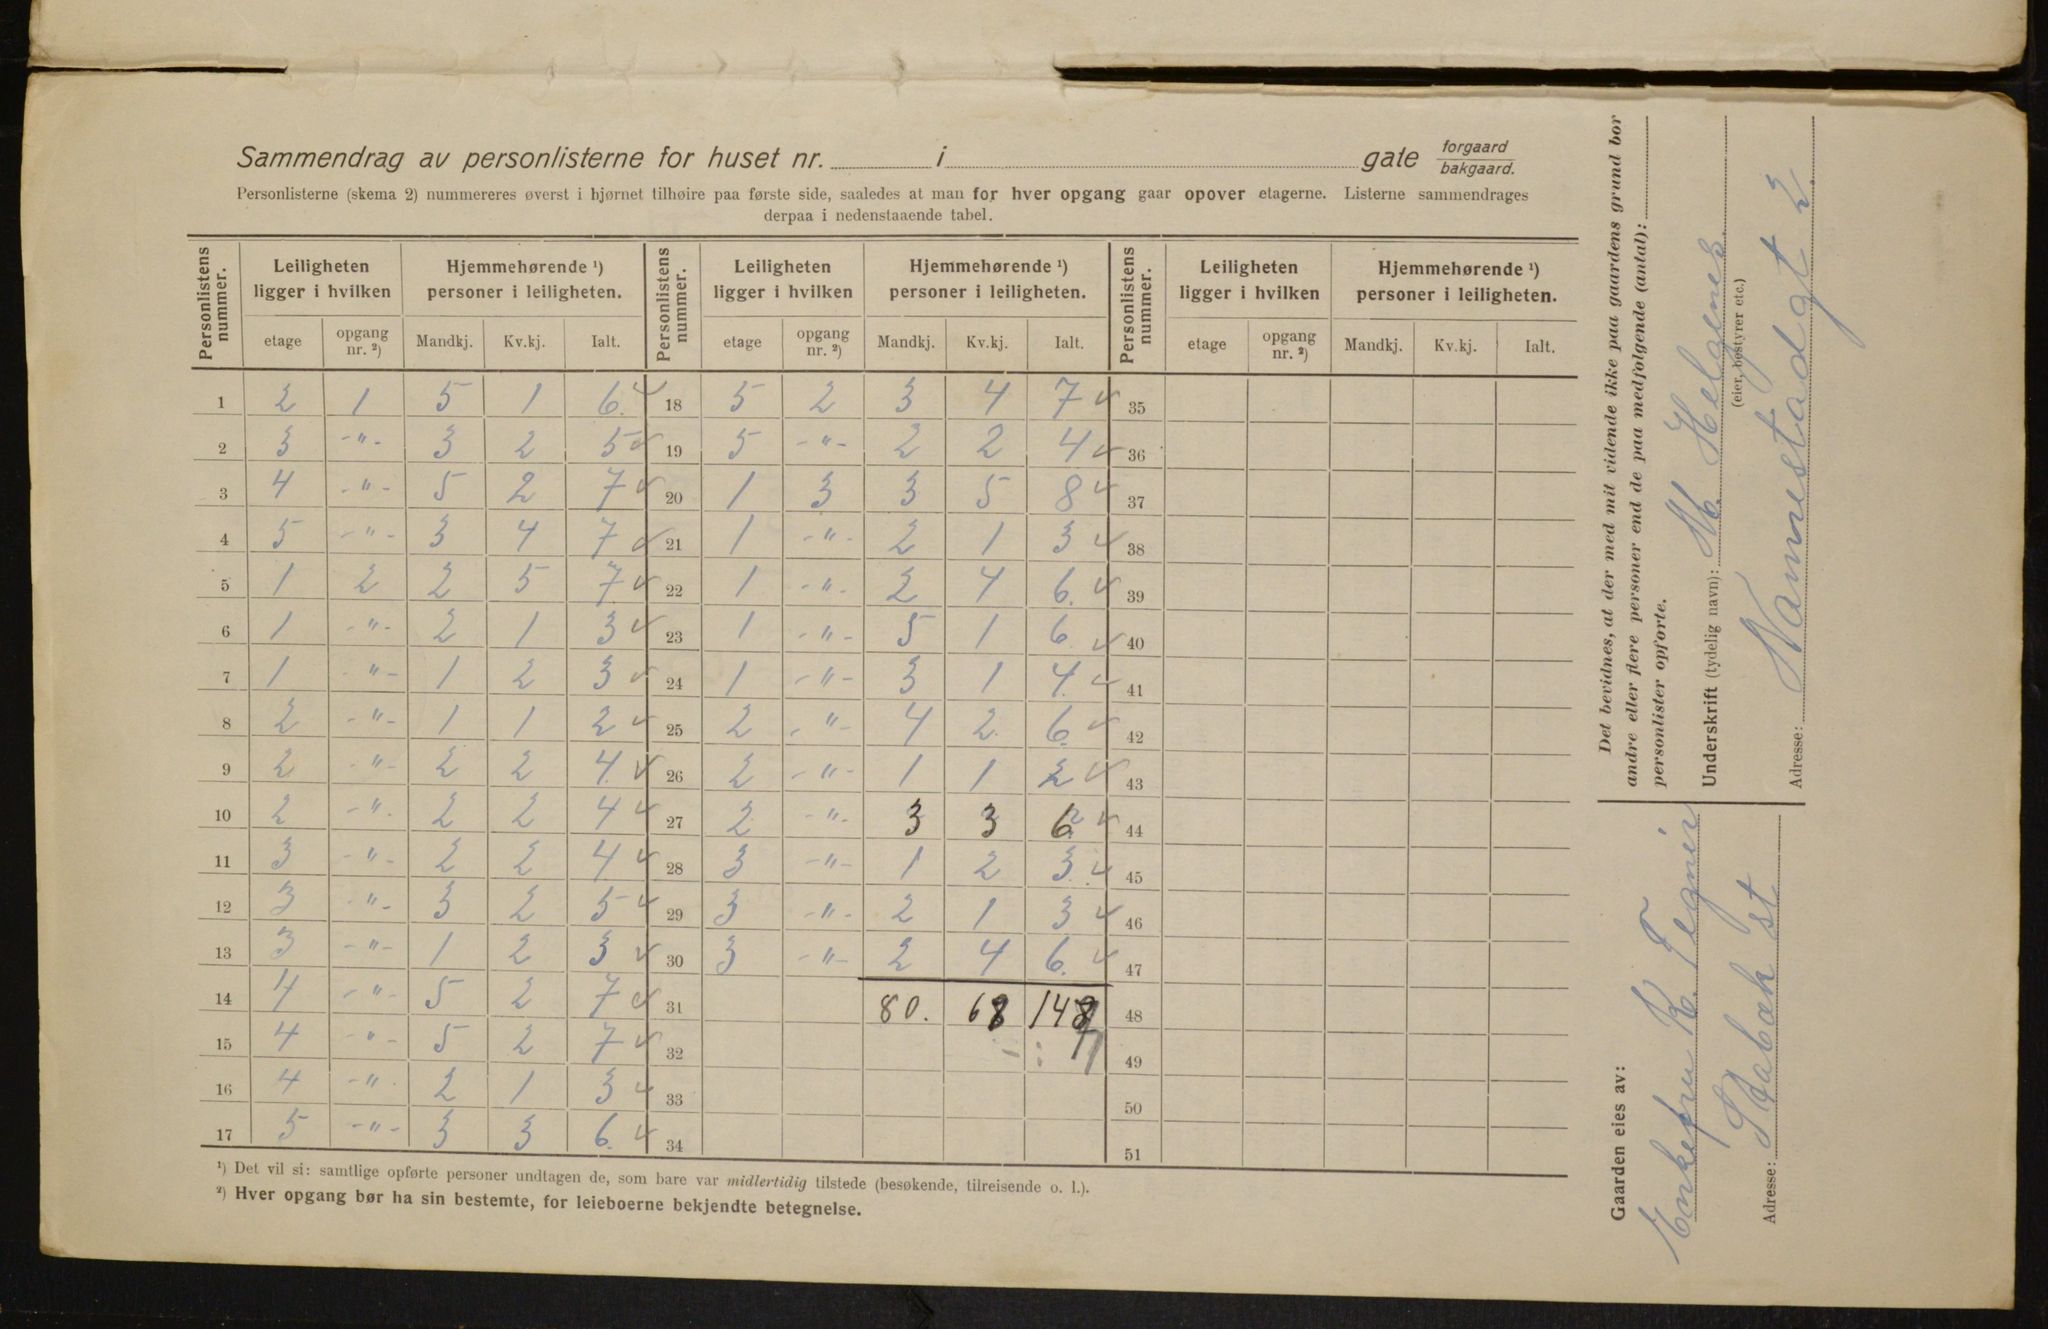 Sammendrag av personlisterne for huset nr. i gate forgaard bakgaard.
Personlisterne (skema 2) nummereres øverst i hjørnet tilhøire paa første side, saaledes at man for hver opgang gaar opover etagerne. Listerne sammendrages
derpaa i nedenstaaende tabel.
Personlistens nummer. Leiligheten ligger i hvilken Hjemmehørende ¹) personer i leiligheten. Personlistens nummer. Leiligheten ligger i hvilken Hjemmehørende ¹) personer i leiligheten. Personlistens nummer. Leiligheten ligger i hvilken Hjemmehørende ¹) personer i leiligheten.
etage opgang nr. ²) Mandkj. Kv.kj. Ialt. etage opgang nr. ²) Mandkj. Kv.kj. Ialt. etage opgang nr. ²) Mandkj. Kv.kj. Ialt.
1 2 1 5 1 6. 18 5 2 3 4 7 35
2 3 -"- 3 2 5 19 5 -"- 2 2 4 36
3 4 -"- 5 2 7 20 1 3 3 5 8 37
4 5 -"- 3 4 7 21 1 -"- 2 1 3 38
5 1 2 2 5 7 22 1 -"- 2 4 6. 39
6 1 -"- 2 1 3 23 1 -"- 5 1 6. 40
7 1 -"- 1 2 3 24 1 -"- 3 1 4. 41
8 2 -"- 1 1 2 25 2 -"- 4 2. 6. 42
9 2 -"- 2 2 4. 26 2 -"- 1 1 2 43
10 2 -"- 2 2 4 27 2 -"- 3 3 6 44
11 3 -"- 2 2 4 28 3 -"- 1 2 3. 45
12 3 -"- 3 2 5 29 3 -"- 2 1 3 46
13 3 -"- 1 2 3 30 3 -"- 2 4 6. 47
14 4 -"- 5 2 7 31 80. 68 148 48
15 4 -"- 5 2 7 32 49
16 4 -"- 2 1 3 33 50
17 5 -"- 3 3 6. 34 51
¹) Det vil si: samtlige opførte personer undtagen de, som bare var midlertidig tilstede (besøkende, tilreisende o. l.).
²) Hver opgang bør ha sin bestemte, for leieboerne bekjendte betegnelse.
Det bevidnes, at der med mit vidende ikke paa gaardens grund bor
andre eller flere personer end de paa medfølgende (antal):
personlister opførte.
Underskrift (tydelig navn): M. Helgenes
(eier, bestyrer etc.)
Adresse: Nannestadgt 2.
Gaarden eies av:
Enkefru K. Tegnér
Adresse: Stabæk st